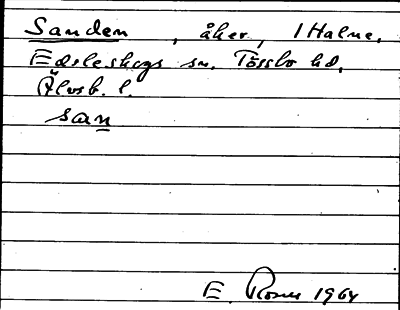 Sanden, åker, 1 Halne,
Edsleskogs sn. Tössbo hd,
Älvsb. l.
san
E. Rosell 1964